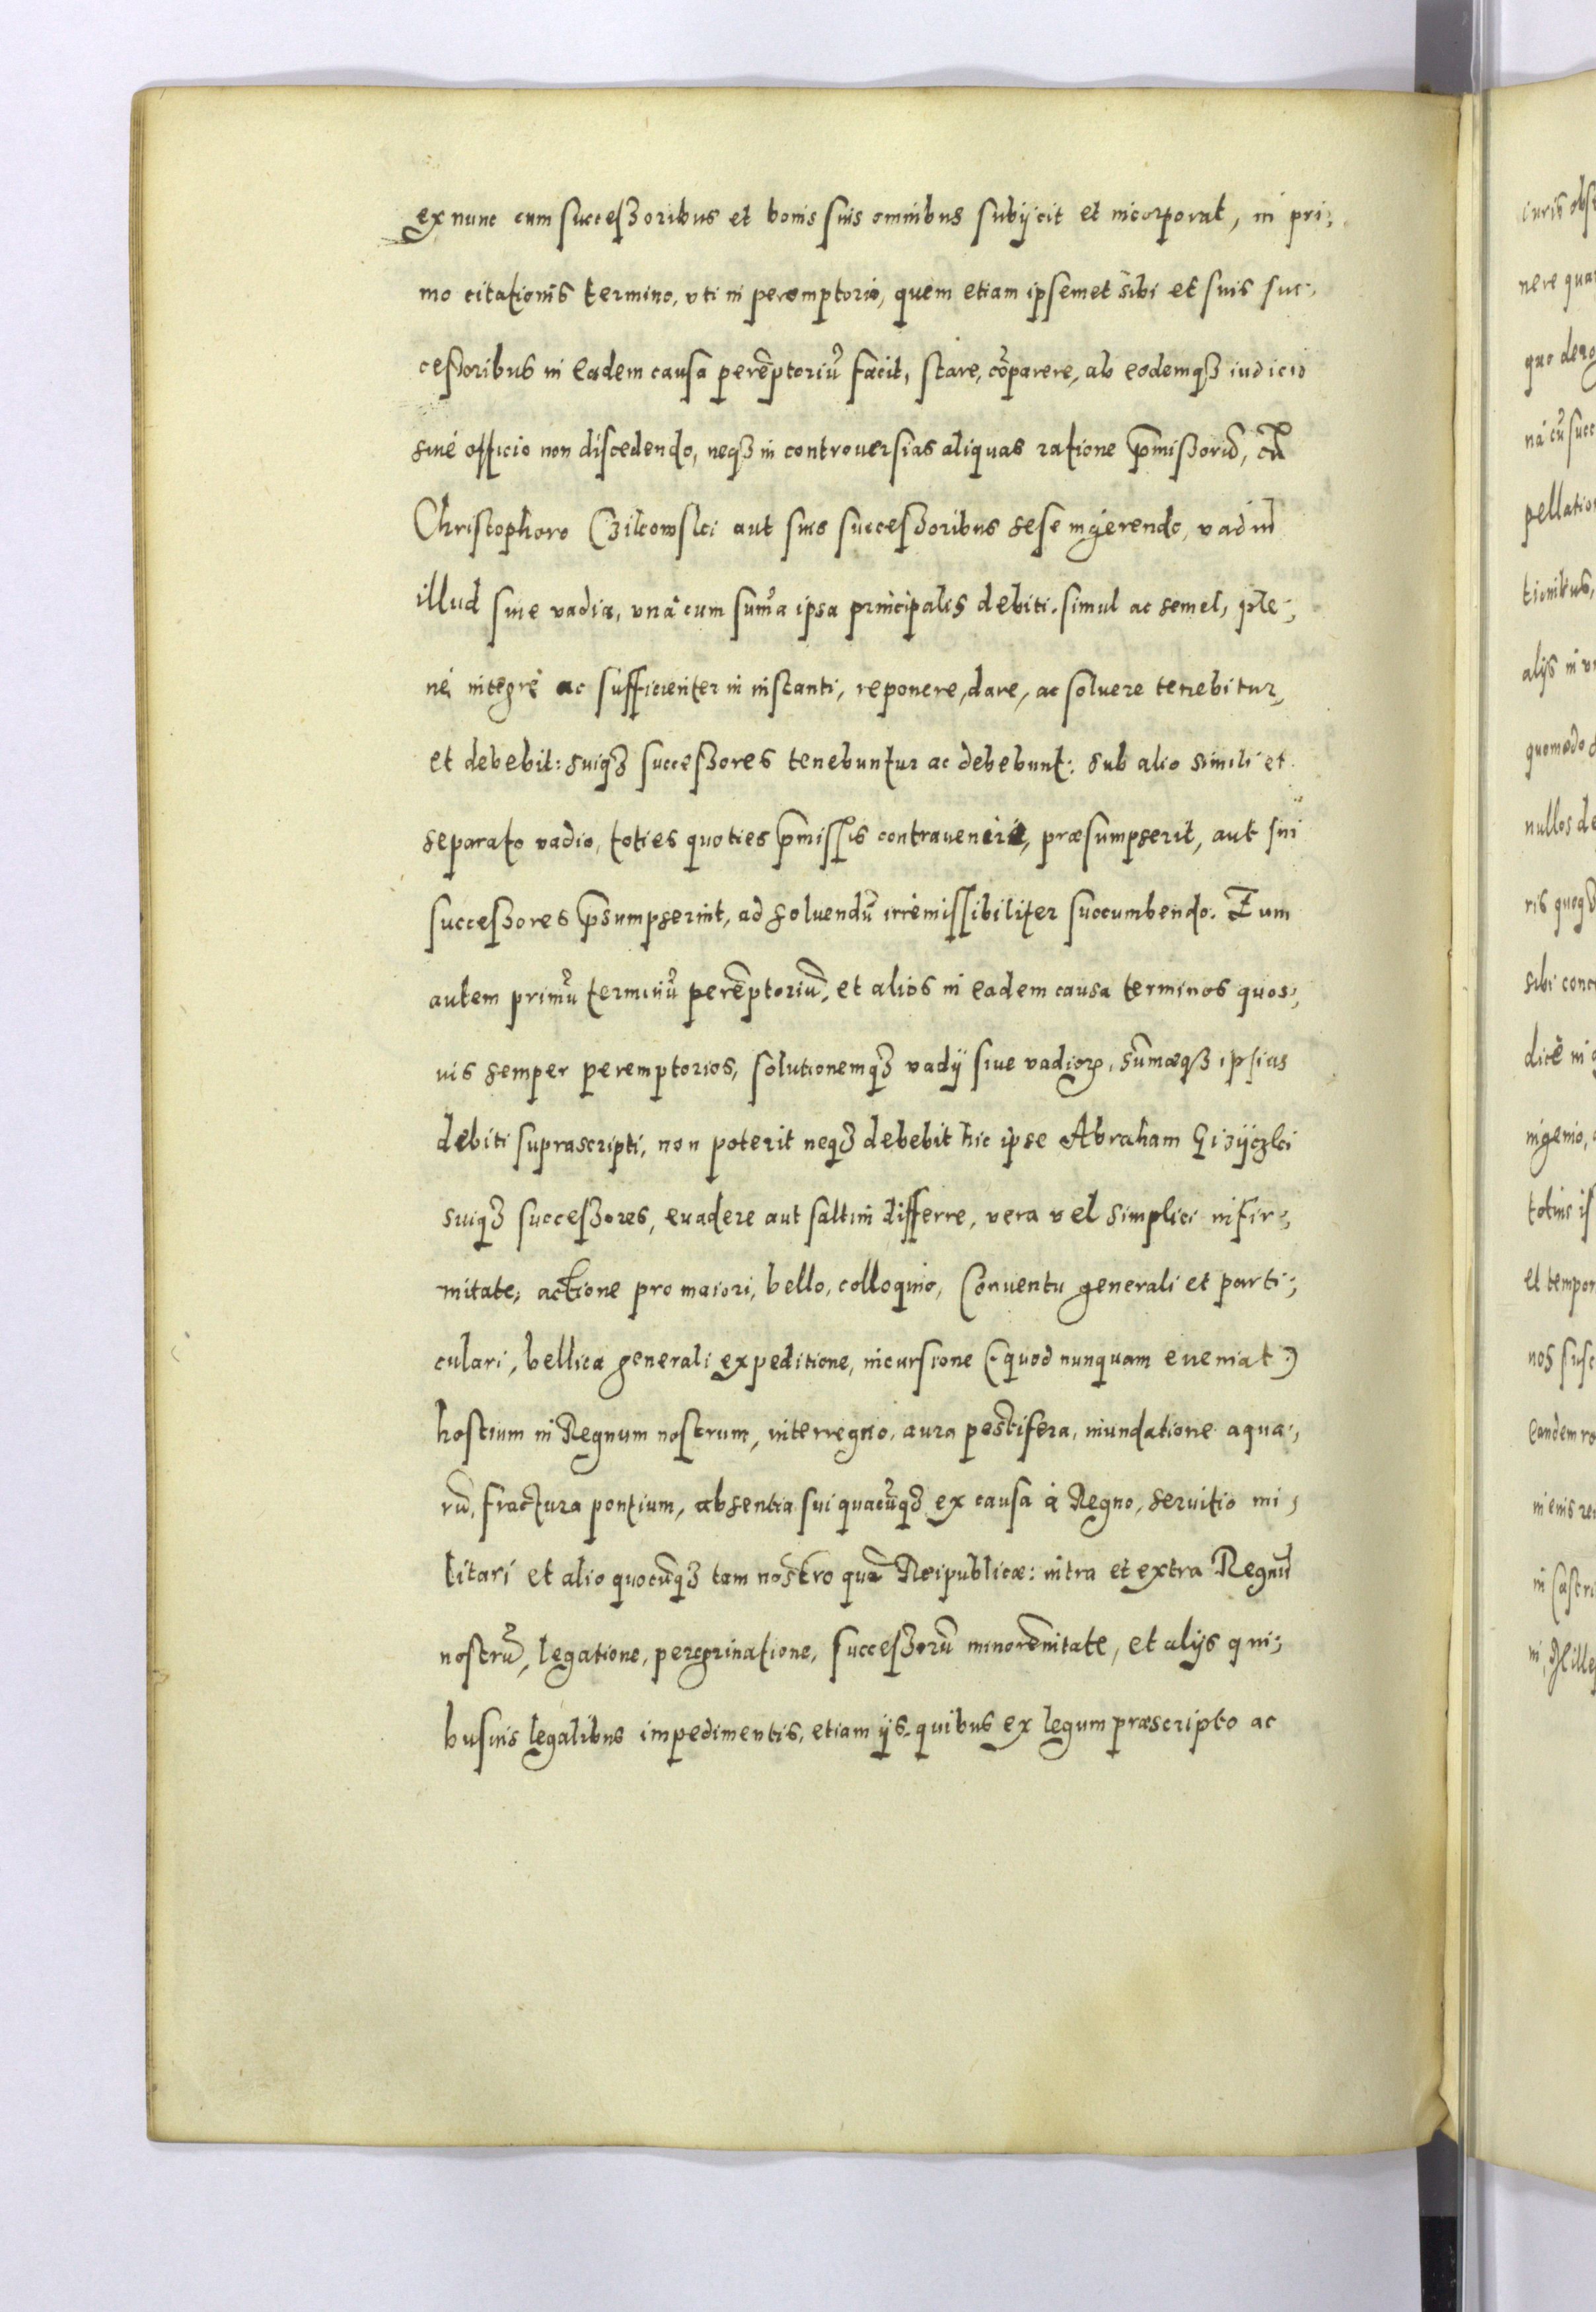 ex nunc cum successoribus et bonis suis omnibus subijcit et incorporat, in pri;
mo citationis termino, vti in peremptorio, quem etiam ipsemet sibi et suis suc;
cessoribus in eadem causa perēptoriū facit, stare, cōparere, ab eodemqȝ iudicio
siué officio non discedendo, neqȝ in controuersias aliquas ratione p̄missorū, cū
Christophoro Czikowski aut suis successoribus sese ingerendo, vadiū
illud siue vadia, vná cum sum̄a ipsa principalis debiti. simul ac semel, ple;
né integré ac sufficienter in instanti, reponere, dare, ac soluere tenebitur,
et debebit: suiqȝ successores tenebuntur ac debebunt: sub alio simili et
separato vadio, toties quoties p̄missis contrauenire, præsumpserit, aut sui
successores p̄sumpserint, ad soluendū irremissibiliter succumbendo. Eum
autem primū terminū perēptoriū, et alios in eadem causa terminos quos;
uis semper peremptorios, solutionemqȝ vadij siue vadioꝝ, sūmæqȝ ipsius
debiti suprascripti, non poterit neqȝ debebit hic ipse Abraham Gizijczki
suiqȝ successores, euadere aut saltim differre, vera vel simplici infir;
mitate, actione pro maiori, bello, colloquio, Conuentu generali et parti;
culari, bellica generali expeditione, incursione (: quod nunquam eueniat :)
hostium in Regnum nostrum, interregno, aura pestifera, inundatione aqua;
rū, fractura pontium, absentia sui quacūqȝ ex causa á Regno, seruitio mi;
litari et alio quocūqȝ tam nostro quā Reipublicæ: intra et extra Regnū
nostrū, legatione, peregrinatione, successorū minorennitate, et alijs qui;
busuis legalibus impedimentis, etiam ijs. quibus ex legum præscripto ac